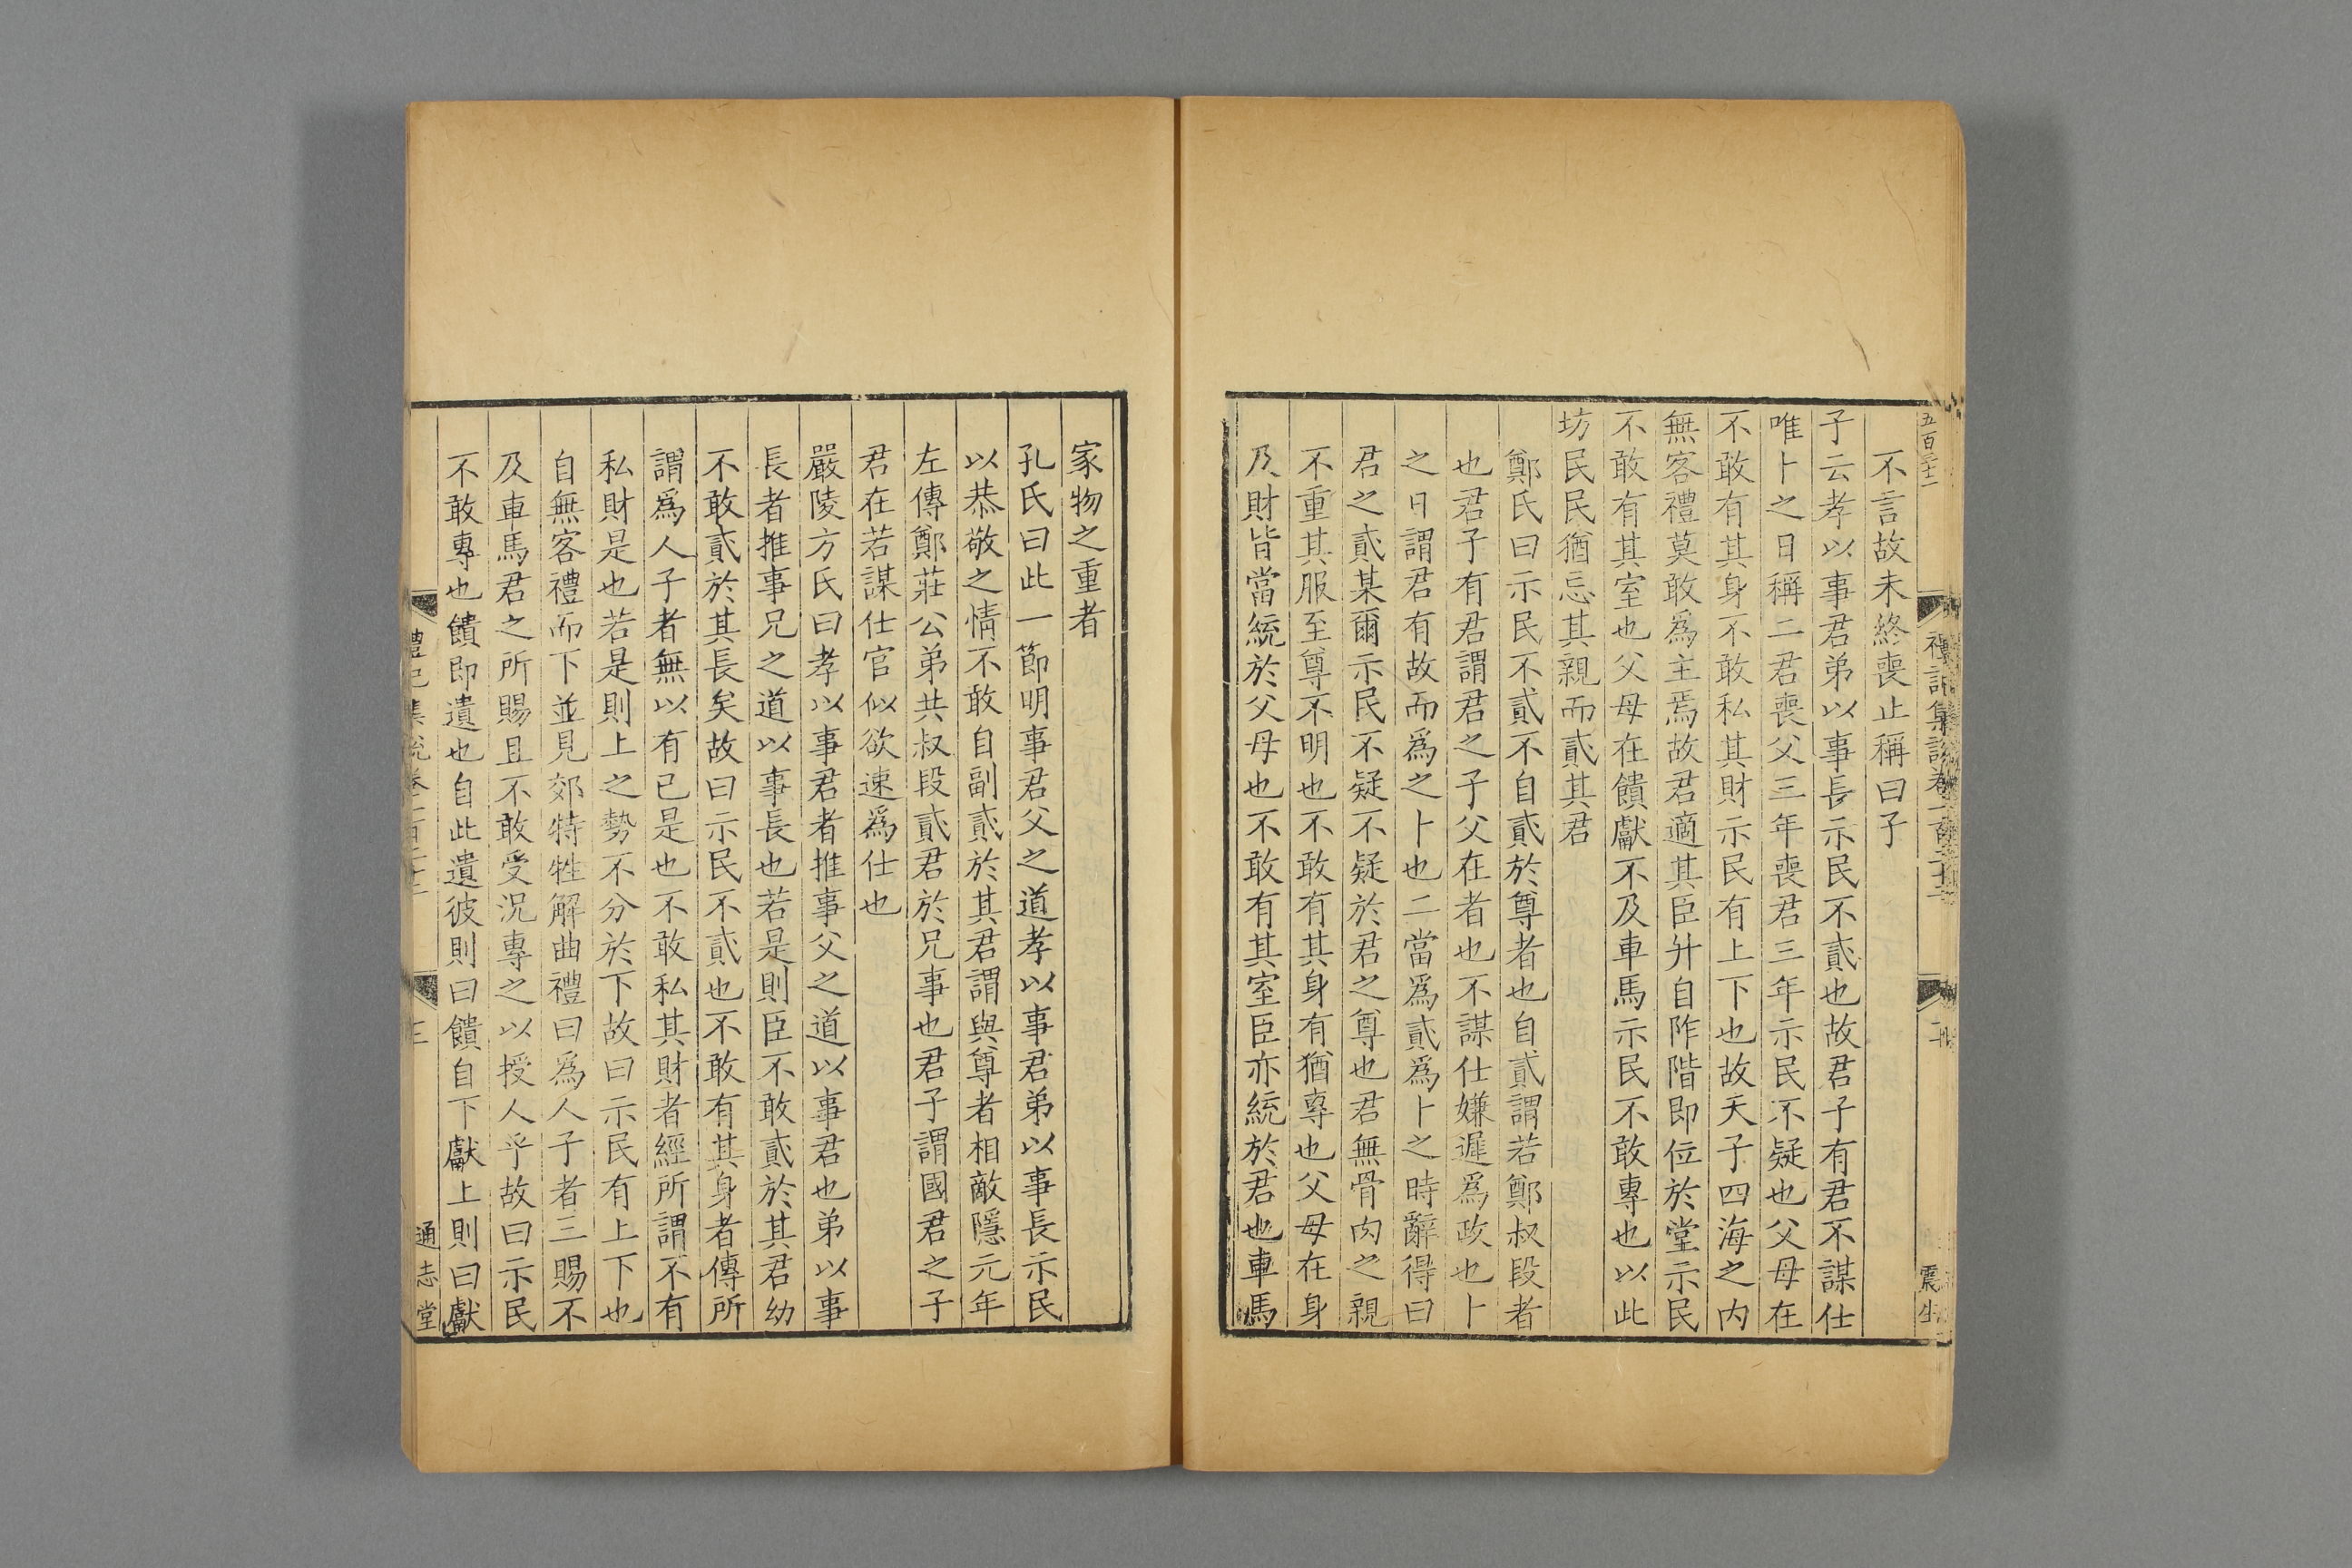 不言故未終喪止稱曰子
子云孝以事君弟以事長示民不貳也故君子有君不謀仕
唯卜之日稱二君喪父三年喪君三年示民不疑也父母在
不敢有其身不敢私其財示民有上下也故天子四海之內
無客禮莫敢爲主焉故君適其臣升自阼階即位於堂示民
不敢有其室也父母在饋獻不及車馬示民不敢專也以此
坊民民猶忘其親而貳其君
鄭氏曰示民不貳不自貳於尊者也自貳謂若鄭叔段者
也君子有君謂君之子父在者也不謀仕嫌遲爲政也卜
之日謂君有故而爲之卜也二當爲貳爲卜之時辭得曰
君之貳某爾示民不疑不疑於君之尊也君無骨肉之親
不重其服至尊不明也不敢有其身有猶專也父母在身
及財皆當統於父母也不敢有其室臣亦統於君也車馬
家物之重者
孔氏曰此一節明事君父之道孝以事君弟以事長示民
以恭敬之情不敢自副貳於其君謂與尊者相敵隱元年
左傳鄭莊公弟共叔段貳君於兄事也君子謂國君之子
君在若謀仕官似欲速爲仕也
嚴陵方氏曰孝以事君者推事父之道以事君也弟以事
長者推事兄之道以事長也若是則臣不敢貳於其君幼
不敢貳於其長矣故曰示民不貳也不敢有其身者傳所
謂爲人子者無以有已是也不敢私其財者經所謂不有
私財是也若是則上之勢不分於下故曰示民有上下也
自無客禮而下並見郊特牲解曲禮曰爲人子者三賜不
及車馬君之所賜且不敢受況專之以授人乎故曰示民
不敢專也饋即遺也自此遺彼則曰饋自下獻上則曰獻
禮記集說卷一百二十二
三
通志堂